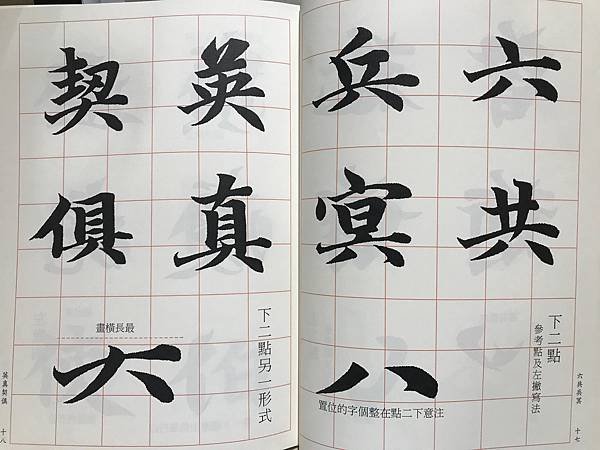 六共
兵冥
下二點
參考點及左撇寫法
八
注意下二點在整個字的位置
六共兵冥
十七
英真
契俱
下二點另一形式
最長橫畫
英真契俱
十八